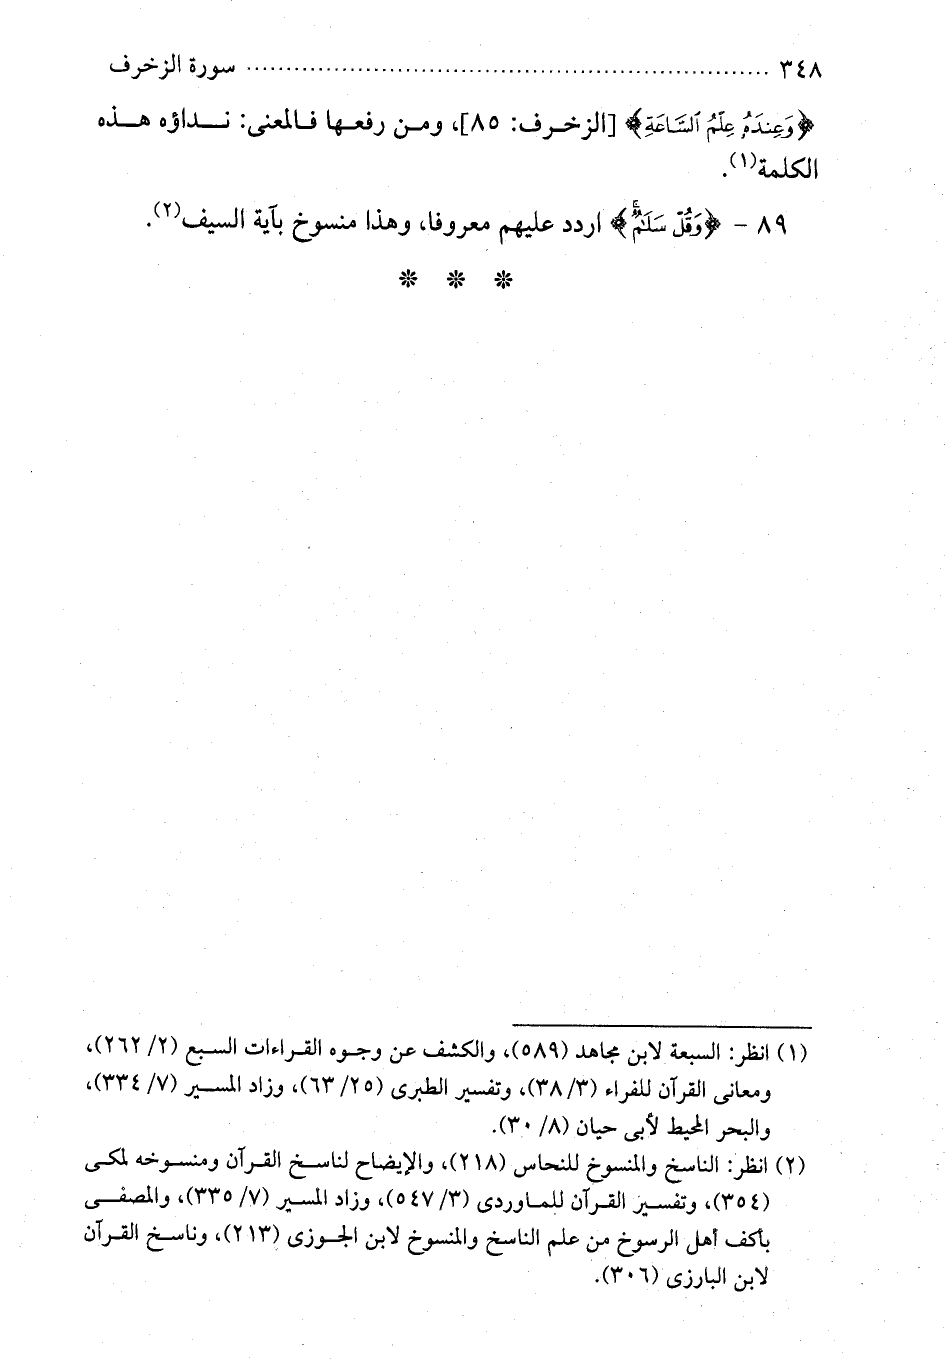 ٣٤٨ ................................................................ سورة الزخرف
﴿وَعِندَهُۥ عِلۡمُ ٱلسَّاعَةِ﴾ [الزخرف: ٨٥]، ومن رفعها فالمعنى: نداؤه هذه
الكلمة(١).
٨٩ - ﴿وَقُلۡ سَلَٰمٌۚ﴾ اردد عليهم معروفا، وهذا منسوخ بآية السيف(٢).
* * *
(١) انظر: السبعة لابن مجاهد (٥٨٩)، والكشف عن وجوه القراءات السبع (٢/ ٢٦٢)،
ومعانى القرآن للفراء (٣/ ٣٨)، وتفسير الطبرى (٢٥/ ٦٣)، وزاد المسير (٧/ ٣٣٤)،
والبحر المحيط لأبى حيان (٨/ ٣٠).
(٢) انظر: الناسخ والمنسوخ للنحاس (٢١٨)، والإيضاح لناسخ القرآن ومنسوخه لمكى
(٣٥٤)، وتفسير القرآن للماوردى (٣/ ٥٤٧)، وزاد المسير (٧/ ٣٣٥)، والمصفى
بأكف أهل الرسوخ من علم الناسخ والمنسوخ لابن الجوزى (٢١٣)، وناسخ القرآن
لابن البارزى (٣٠٦).